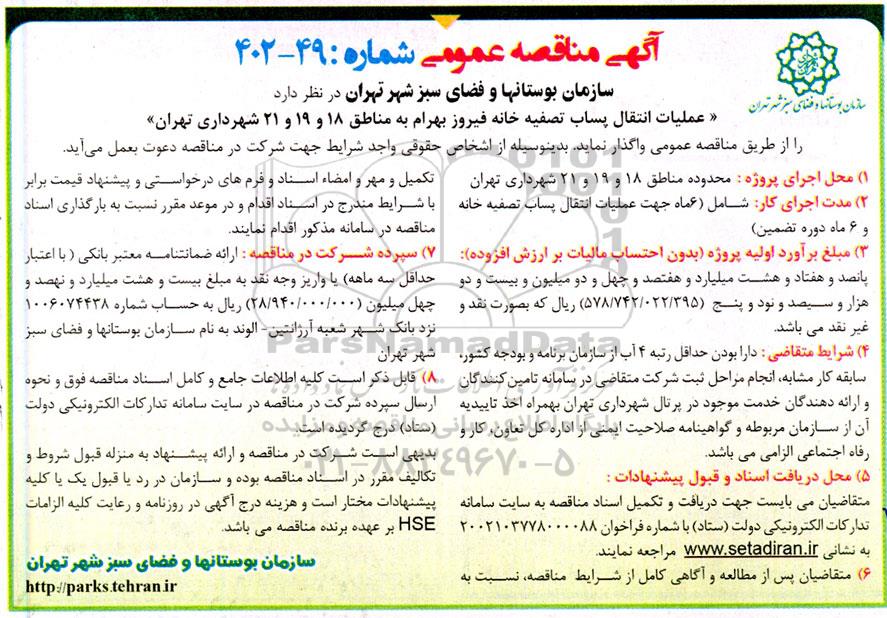 آگهی مناقصه عمومی شماره : ۴۹-۴۰۲
سازمان بوستانها و فضای سبز شهر تهران
سازمان بوستانها و فضای سبز شهر تهران در نظر دارد
« عملیات انتقال پساب تصفیه خانه فیروز بهرام به مناطق ۱۸ و ۱۹ و ۲۱ شهرداری تهران»
را از طریق مناقصه عمومی واگذار نماید. بدینوسیله از اشخاص حقوقی واجد شرایط جهت شرکت در مناقصه دعوت بعمل می‌آید.
۱) محل اجرای پروژه : محدوده مناطق ۱۸ و ۱۹ و ۲۱ شهرداری تهران
۲) مدت اجرای کار: شامل (۶ماه جهت عملیات انتقال پساب تصفیه خانه
و ۶ ماه دوره تضمین)
۳) مبلغ برآورد اولیه پروژه (بدون احتساب مالیات بر ارزش افزوده):
پانصد و هفتاد و هشت میلیارد و هفتصد و چهل و دو میلیون و بیست و دو
هزار و سیصد و نود و پنج (۵۷۸/۷۴۲/۰۲۲/۳۹۵) ریال که بصورت نقد و
غیر نقد می باشد.
۴) شرایط متقاضی : دارا بودن حداقل رتبه ۴ آب از سازمان برنامه و بودجه کشور،
سابقه کار مشابه، انجام مراحل ثبت شرکت متقاضی در سامانه تامین کنندگان
و ارائه دهندگان خدمت موجود در پرتال شهرداری تهران بهمراه اخذ تاییدیه
آن از سازمان مربوطه و گواهینامه صلاحیت ایمنی از اداره کل تعاون، کار و
رفاه اجتماعی الزامی می باشد.
۵) محل دریافت اسناد و قبول پیشنهادات :
متقاضیان می بایست جهت دریافت و تکمیل اسناد مناقصه به سایت سامانه
تدارکات الکترونیکی دولت (ستاد) با شماره فراخوان ۲۰۰۲۱۰۳۷۷۸۰۰۰۰۸۸
به نشانی www.setadiran.ir مراجعه نمایند.
۶) متقاضیان پس از مطالعه و آگاهی کامل از شرایط مناقصه، نسبت به
تکمیل و مهر و امضاء اسناد و فرم های درخواستی و پیشنهاد قیمت برابر
با شرایط مندرج در اسناد اقدام و در موعد مقرر نسبت به بارگذاری اسناد
مناقصه در سامانه مذکور اقدام نمایند.
۷) سپرده شرکت در مناقصه : ارائه ضمانتنامه معتبر بانکی ( با اعتبار
حداقل سه ماهه) یا واریز وجه نقد به مبلغ بیست و هشت میلیارد و نهصد و
چهل میلیون (۲۸/۹۴۰/۰۰۰/۰۰۰) ریال به حساب شماره ۱۰۰۶۰۷۴۴۳۸
نزد بانک شهر شعبه آرژانتین- الوند به نام سازمان بوستانها و فضای سبز
شهر تهران
۸) قابل ذکر است کلیه اطلاعات جامع و کامل اسناد مناقصه فوق و نحوه
ارسال سپرده شرکت در مناقصه در سایت سامانه تدارکات الکترونیکی دولت
(ستاد) درج گردیده است.
بدیهی است شرکت در مناقصه و ارائه پیشنهاد به منزله قبول شروط و
تکالیف مقرر در اسناد مناقصه بوده و سازمان در رد یا قبول یک یا کلیه
پیشنهادات مختار است و هزینه درج آگهی در روزنامه و رعایت کلیه الزامات
HSE بر عهده برنده مناقصه می باشد.
سازمان بوستانها و فضای سبز شهر تهران
http://parks.tehran.ir
ParsNamadData
۰۲۱-۸۸۳۴۹۶۷۰-۵